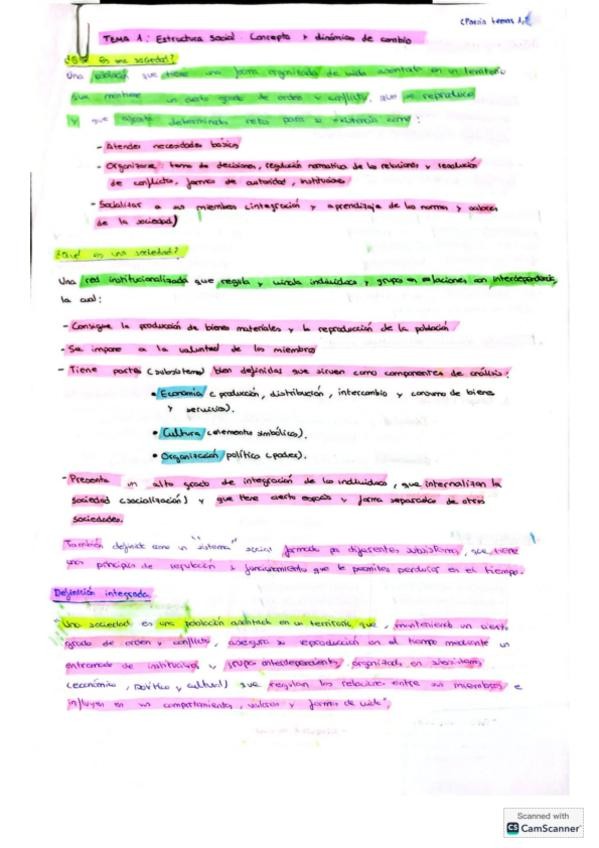 TEMA 1: Estructura social. Concepto y dinámica de cambio
es una sociedad?
Una población que tiene una forma organizada de vida asentada en un territorio
que mantiene un cierto grado de orden y conflicto, que se reproduce
y que afronta determinados retos para su existencia como:
- Atender necesidades básicas
- Organizarse: toma de decisiones, regulación normativa de las relaciones y resolución
de conflictos, formas de autoridad, instituciones
- Socializar a sus miembros (integración y aprendizaje de las normas y valores
de la sociedad)
¿Qué es una sociedad?
Una red institucionalizada que regula y vincula individuos y grupos en relaciones con interdependencia,
la cual:
- Consigue la producción de bienes materiales y la reproducción de la población
- Se impone a la voluntad de los miembros
- Tiene partes (subsistemas) bien definidas que sirven como componentes de análisis:
• Economía (producción, distribución, intercambio y consumo de bienes
y servicios).
• Cultura (elementos simbólicos).
• Organización política (poder).
- Presenta un alto grado de integración de los individuos, que internalizan la
sociedad (socialización) y que tiene cierto espacio y forma separados de otras
sociedades.
También definida como un "sistema" social formado por diferentes subsistemas, que tiene
unos principios de regulación y funcionamiento que le permiten perdurar en el tiempo.
Definición integrada
"Una sociedad es una población asentada en un territorio que, manteniendo un cierto
grado de orden y conflicto, asegura su reproducción en el tiempo mediante un
entramado de instituciones y grupos interdependientes, organizados en subsistemas
(económico, político y cultural) que regulan las relaciones entre sus miembros e
influyen en sus comportamientos, valores y formas de vida".
Scanned with
CS CamScanner